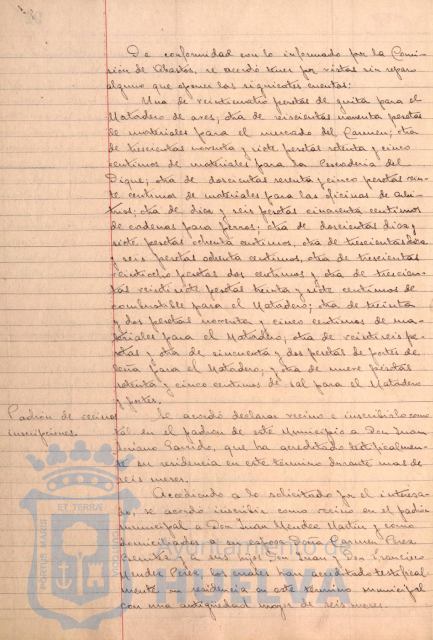 De conformidad con lo informado por la Comi-
sión de Abastos, se acordó tener por vistas sin reparo
alguno que oponer las siguientes cuentas:
Una de veinticuatro pesetas de guita para el
Matadero de aves; otra de seiscientas noventa pesetas
de materiales para el mercado del Carmen; otra
de trescientas noventa y siete pesetas setenta y cinco
centimos de materiales para la Pescadería del
Dique; otra de doscientas setenta y cinco pesetas vein-
te centimos de materiales para las oficinas de arbi-
trios; otra de diez y seis pesetas cincuenta centimos
de cadenas para perros; otra de doscientas diez y
siete pesetas ochenta centimos, otra de trescientas diez
y seis pesetas ochenta centimos, otra de trescientas
veintiocho pesetas dos centimos y otra de trescien-
tas veintisiete pesetas treinta y siete centimos de
combustible para el Matadero; otra de treinta
y dos pesetas noventa y cinco centimos de ma-
teriales para el Matadero; otra de veintiseis pe-
setas y otra de cincuenta y dos pesetas de portes de
leña para el Matadero; y otra de nueve pesetas
setenta y cinco centimos de sal para el Matadero
y portes.
Padrón de vecinos
inscripciones.
Se acordó declarar vecino e inscribirlo como
tal en el padron de este Municipio a Don Juan
Soriano Garrido, que ha acreditado testificalmen-
te su residencia en este término durante mas de
seis meses.
Accediendo a lo solicitado por el interesa-
do, se acordó inscribir como vecino en el padrón
municipal a Don Juan Mendez Martin y como
domiciliados a su esposa Doña Carmen Perez
y a sus hijos Don Juan y Don Francisco
Mendez Perez, los cuales han acreditado testifical-
mente su residencia en este termino municipal
con una antigüedad mayor de seis meses.
PORTUS MARIS
ET TERRAE
CUSTODIA
Ayuntamiento de
HUELVA